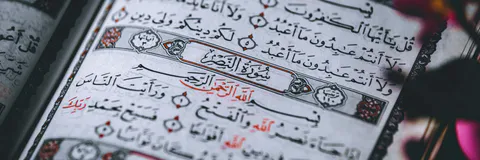 بِسْمِ
قُلْ يَا أَيُّهَا الْكَافِرُونَ
وَلَا أَنْتُمْ عَابِدُونَ مَا أَعْبُدُ ۝ وَلَا أَنَا عَابِدٌ مَا
وَلَا أَنْتُمْ عَابِدُونَ مَا أَعْبُدُ ۝ لَكُمْ دِينُكُمْ وَلِيَ دِينِ
سُورَةُ النَّصْرِ
بِسْمِ اللَّهِ الرَّحْمَنِ الرَّحِيمِ
إِذَا جَاءَ نَصْرُ اللَّهِ وَالْفَتْحُ ۝ وَرَأَيْتَ النَّاسَ
دِينِ اللَّهِ أَفْوَاجًا ۝ فَسَبِّحْ بِحَمْدِ رَبِّكَ
كَانَ تَوَّابًا